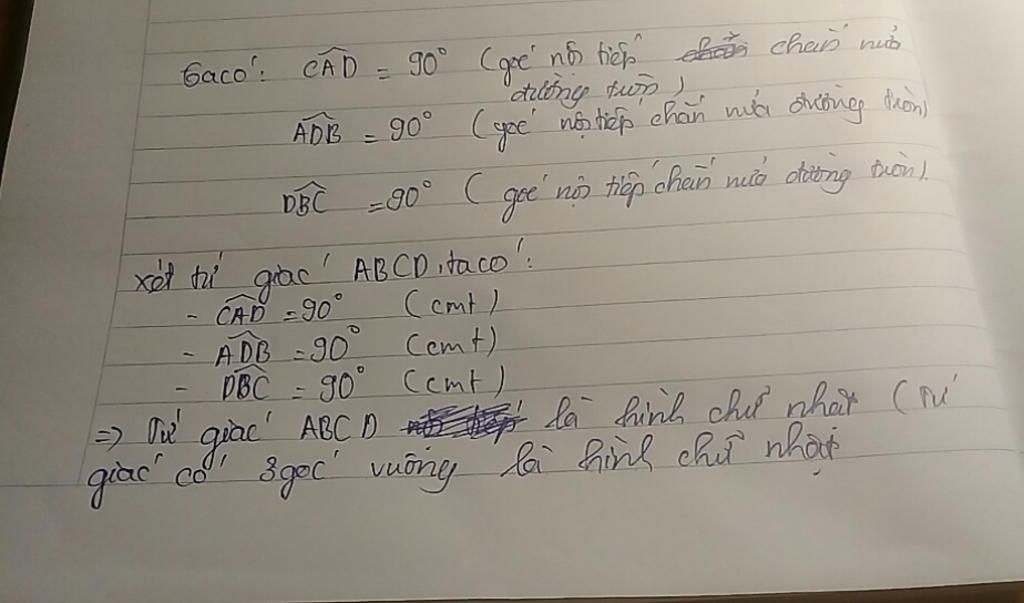 Ta có: CAD = 90° (góc nội tiếp chắn nửa
đường tròn)
ADB = 90° (góc nội tiếp chắn nửa đường tròn)
DBC = 90° (góc nội tiếp chắn nửa đường tròn).
xét tứ giác ABCD, ta có:
- CAD = 90° (cmt)
- ADB = 90° (cmt)
- DBC = 90° (cmt)
=> Tứ giác ABCD là hình chữ nhật (Tứ
giác có 3 góc vuông là hình chữ nhật